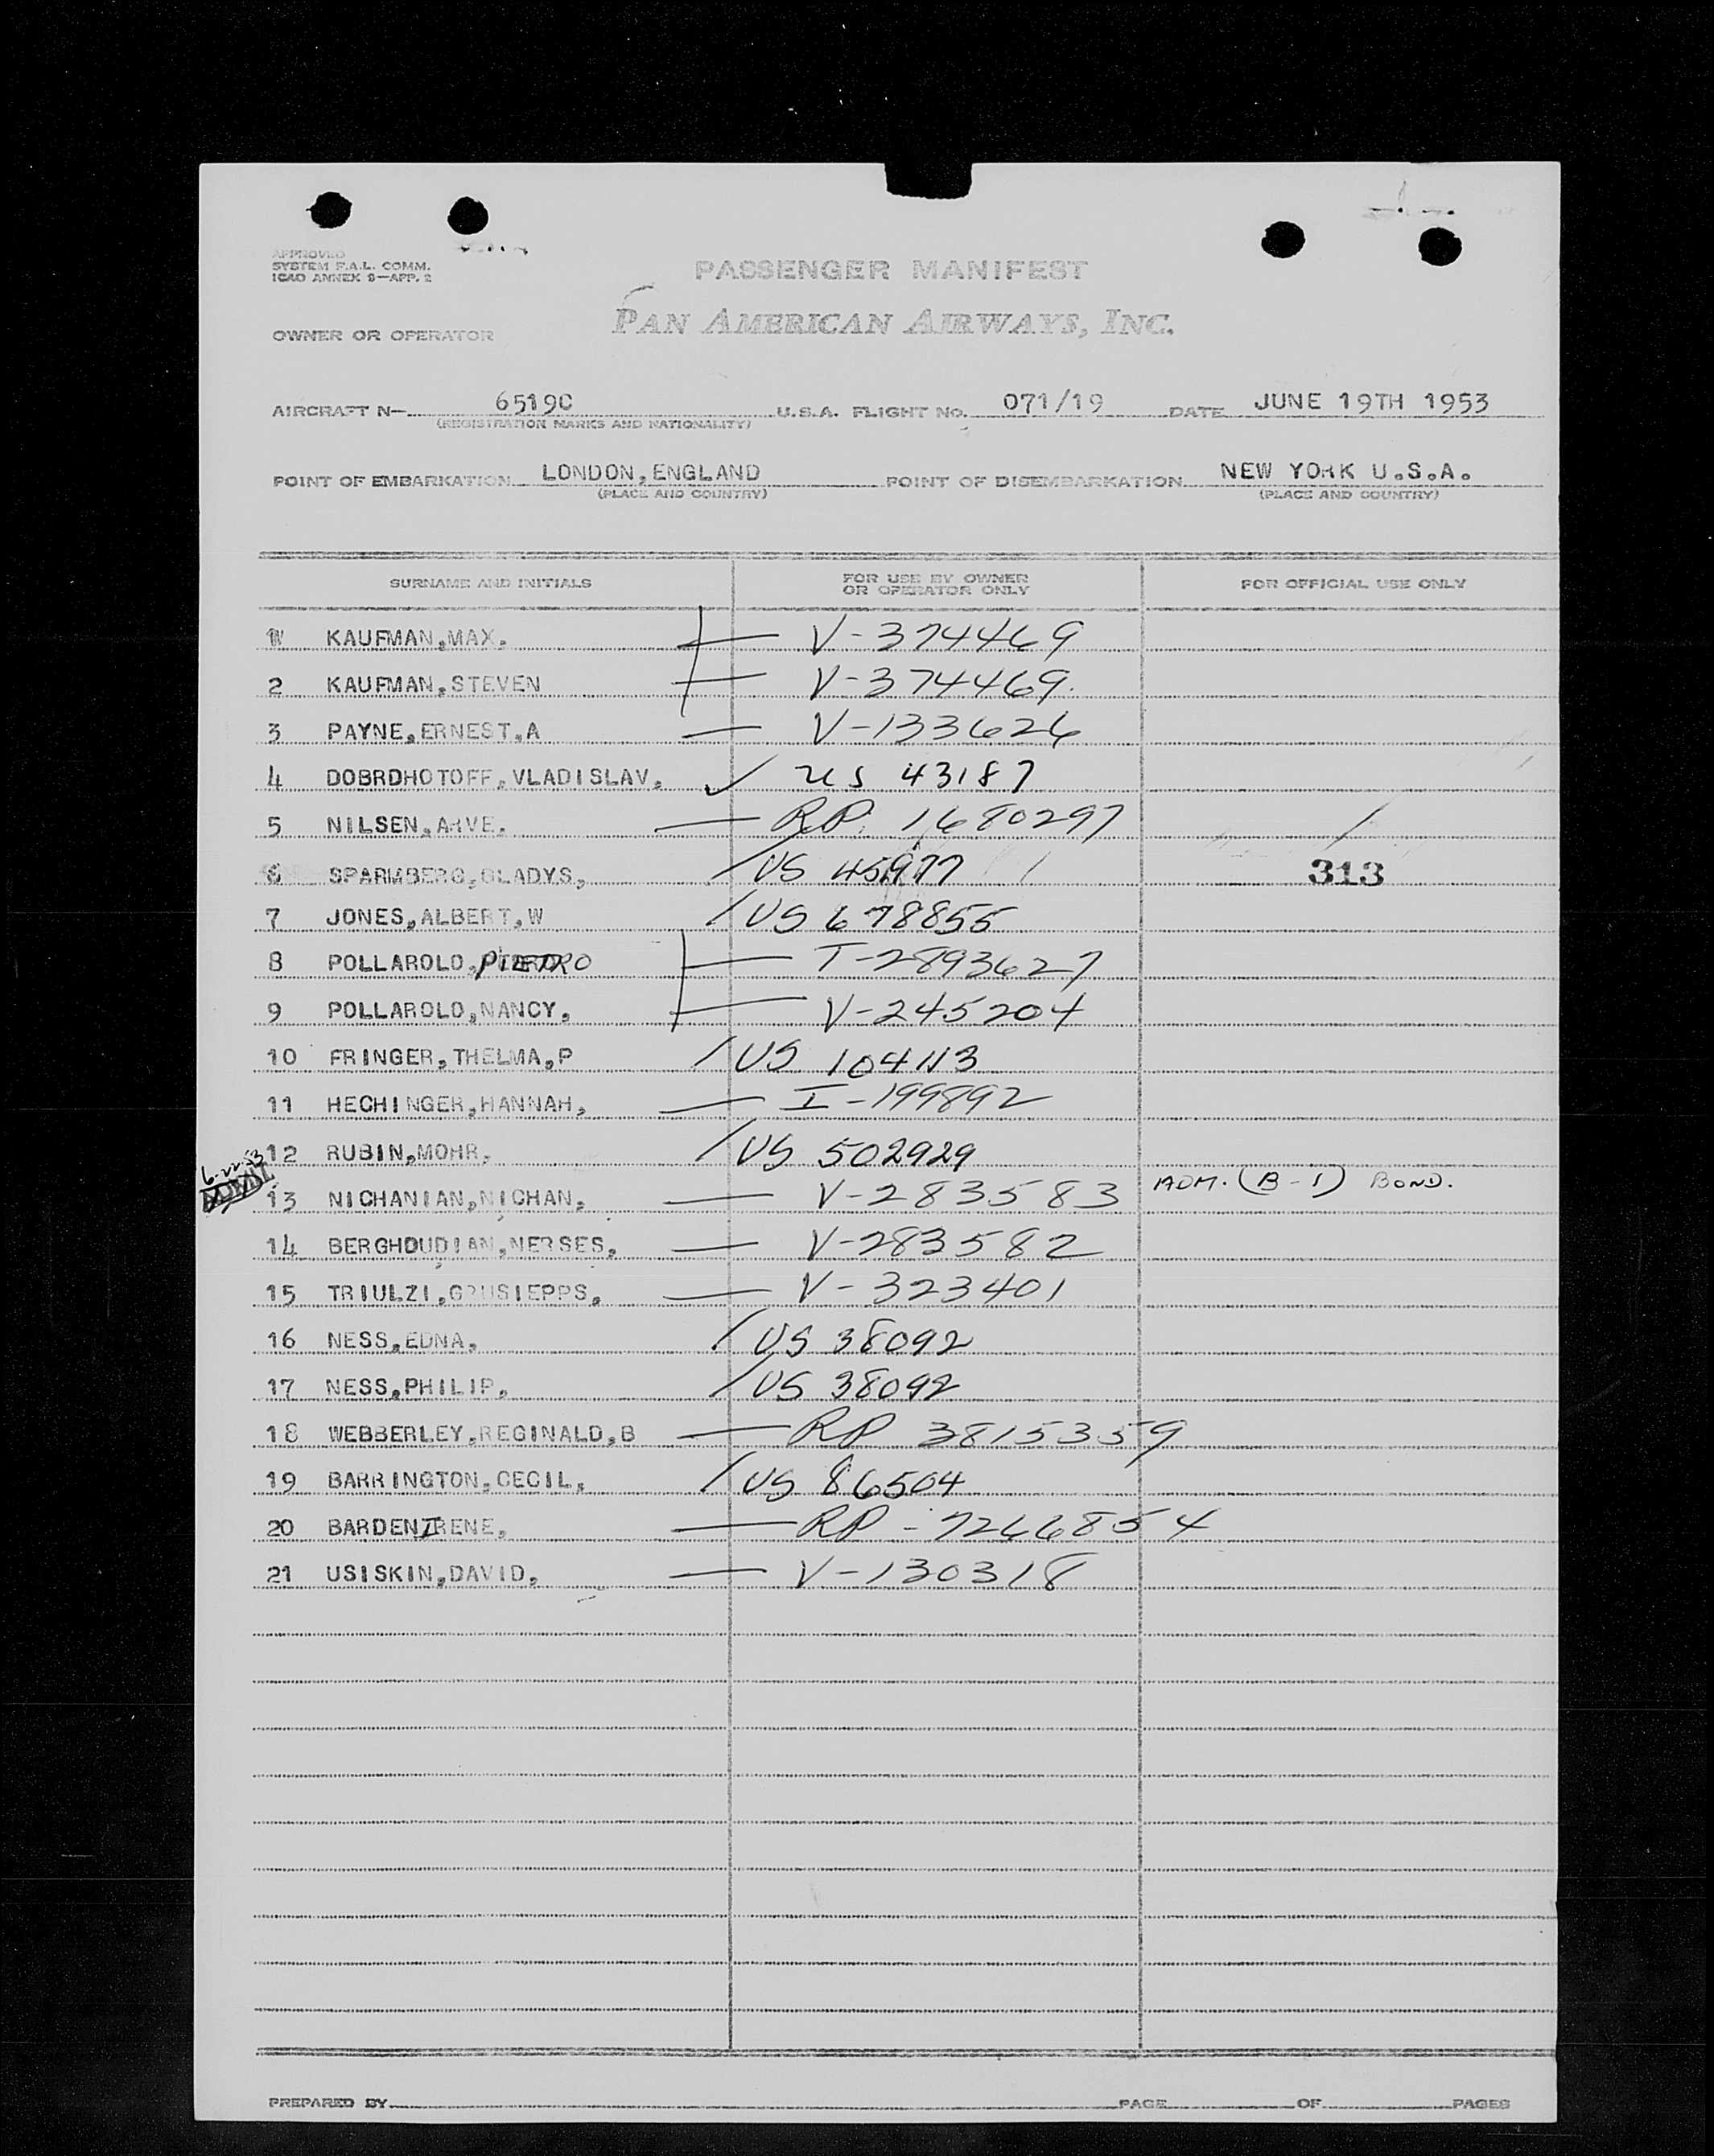 APPROVED
SYSTEM F.A.L. COMM.
ICAO ANNEX 9—APP. 2
PASSENGER MANIFEST
OWNER OR OPERATOR PAN AMERICAN AIRWAYS, INC.
AIRCRAFT N— 6519C U.S.A. FLIGHT No. 071/19 DATE JUNE 19TH 1953
(REGISTRATION MARKS AND NATIONALITY)
POINT OF EMBARKATION LONDON,ENGLAND POINT OF DISEMBARKATION NEW YORK U.S.A.
(PLACE AND COUNTRY) (PLACE AND COUNTRY)
SURNAME AND INITIALS FOR USE BY OWNER OR OPERATOR ONLY FOR OFFICIAL USE ONLY
1 KAUFMAN,MAX. — V-374469
2 KAUFMAN,STEVEN — V-374469.
3 PAYNE,ERNEST,A — V-133626
4 DOBRDHOTOFF,VLADISLAV, ✓ US 43187
5 NILSEN,ARVE. — RP. 1680297
6 SPARMBERG,GLADYS, / US 45977 313
7 JONES,ALBERT,W / US 678855
8 POLLAROLO,PIETRO — T-2893627
9 POLLAROLO,NANCY, — V-245204
10 FRINGER,THELMA,P / US 104113
11 HECHINGER,HANNAH, — I-199892
12 RUBIN,MOHR. / US 502929
6-22-53
13 NICHANIAN,NICHAN, — V-283583 ADM. (B-1) BOND.
14 BERGHOUDIAN,NERSES, — V-283582
15 TRIULZI,GRUSIEPPS, — V-323401
16 NESS,EDNA, / US 38092
17 NESS,PHILIP, / US 38092
18 WEBBERLEY,REGINALD,B — RP 3815359
19 BARRINGTON,CECIL, / US 86504
20 BARDEN IRENE, — RP-7266854
21 USISKIN,DAVID, — V-130318
PREPARED BY PAGE OF PAGES